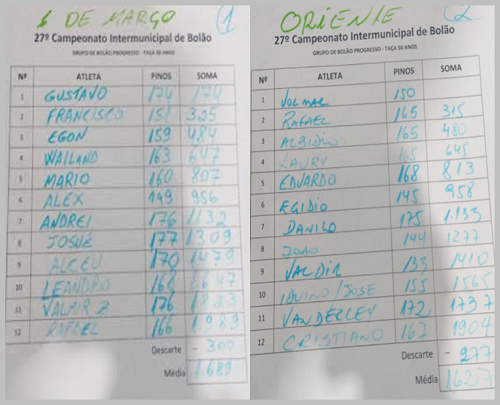 6 DE MARÇO 1
27º Campeonato Intermunicipal de Bolão
GRUPO DE BOLÃO PROGRESSO - TAÇA 50 ANOS
Nº ATLETA PINOS SOMA
1 GUSTAVO 174 174
2 FRANCISCO 151 325
3 EGON 159 484
4 WAILAND 163 647
5 MARIO 160 807
6 ALEX 149 956
7 ANDREI 176 1132
8 JOSUE 177 1309
9 ALCEU 170 1479
10 LEANDRO 168 1647
11 VALMIR B 176 1823
12 RAFAEL 166 1989
Descarte - 300
Média 1689
ORIENTE 2
27º Campeonato Intermunicipal de Bolão
GRUPO DE BOLÃO PROGRESSO - TAÇA 50 ANOS
Nº ATLETA PINOS SOMA
1 VOLMAR 150
2 RAFAEL 165 315
3 ALBIDIO 165 480
4 LAURY 165 645
5 EDUARDO 168 813
6 EGIDIO 145 958
7 DANILO 175 1133
8 JOAO 144 1277
9 VALDIR 133 1410
10 /JOSE 155 1565
11 VANDERLEY 172 1737
12 CRISTIANO 167 1904
Descarte - 277
Média 1627